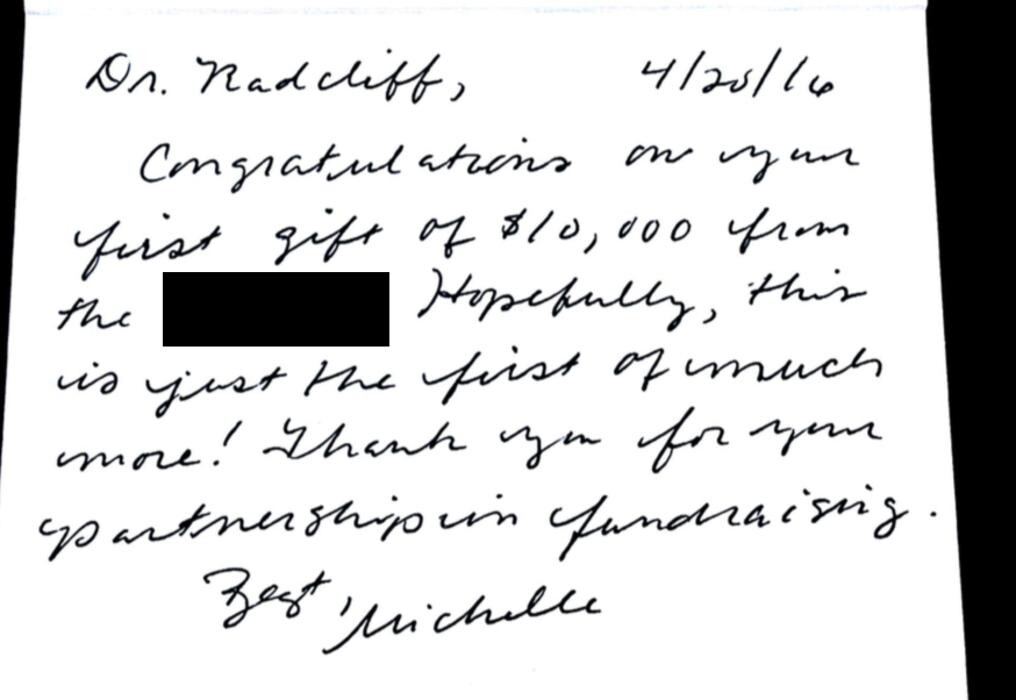 Dr. Radcliff, 4/20/16
Congratulations on your
first gift of $10,000 from
the Hopefully, this
is just the first of much
more! Thank you for your
partnership in fundraising.
Best, Michelle